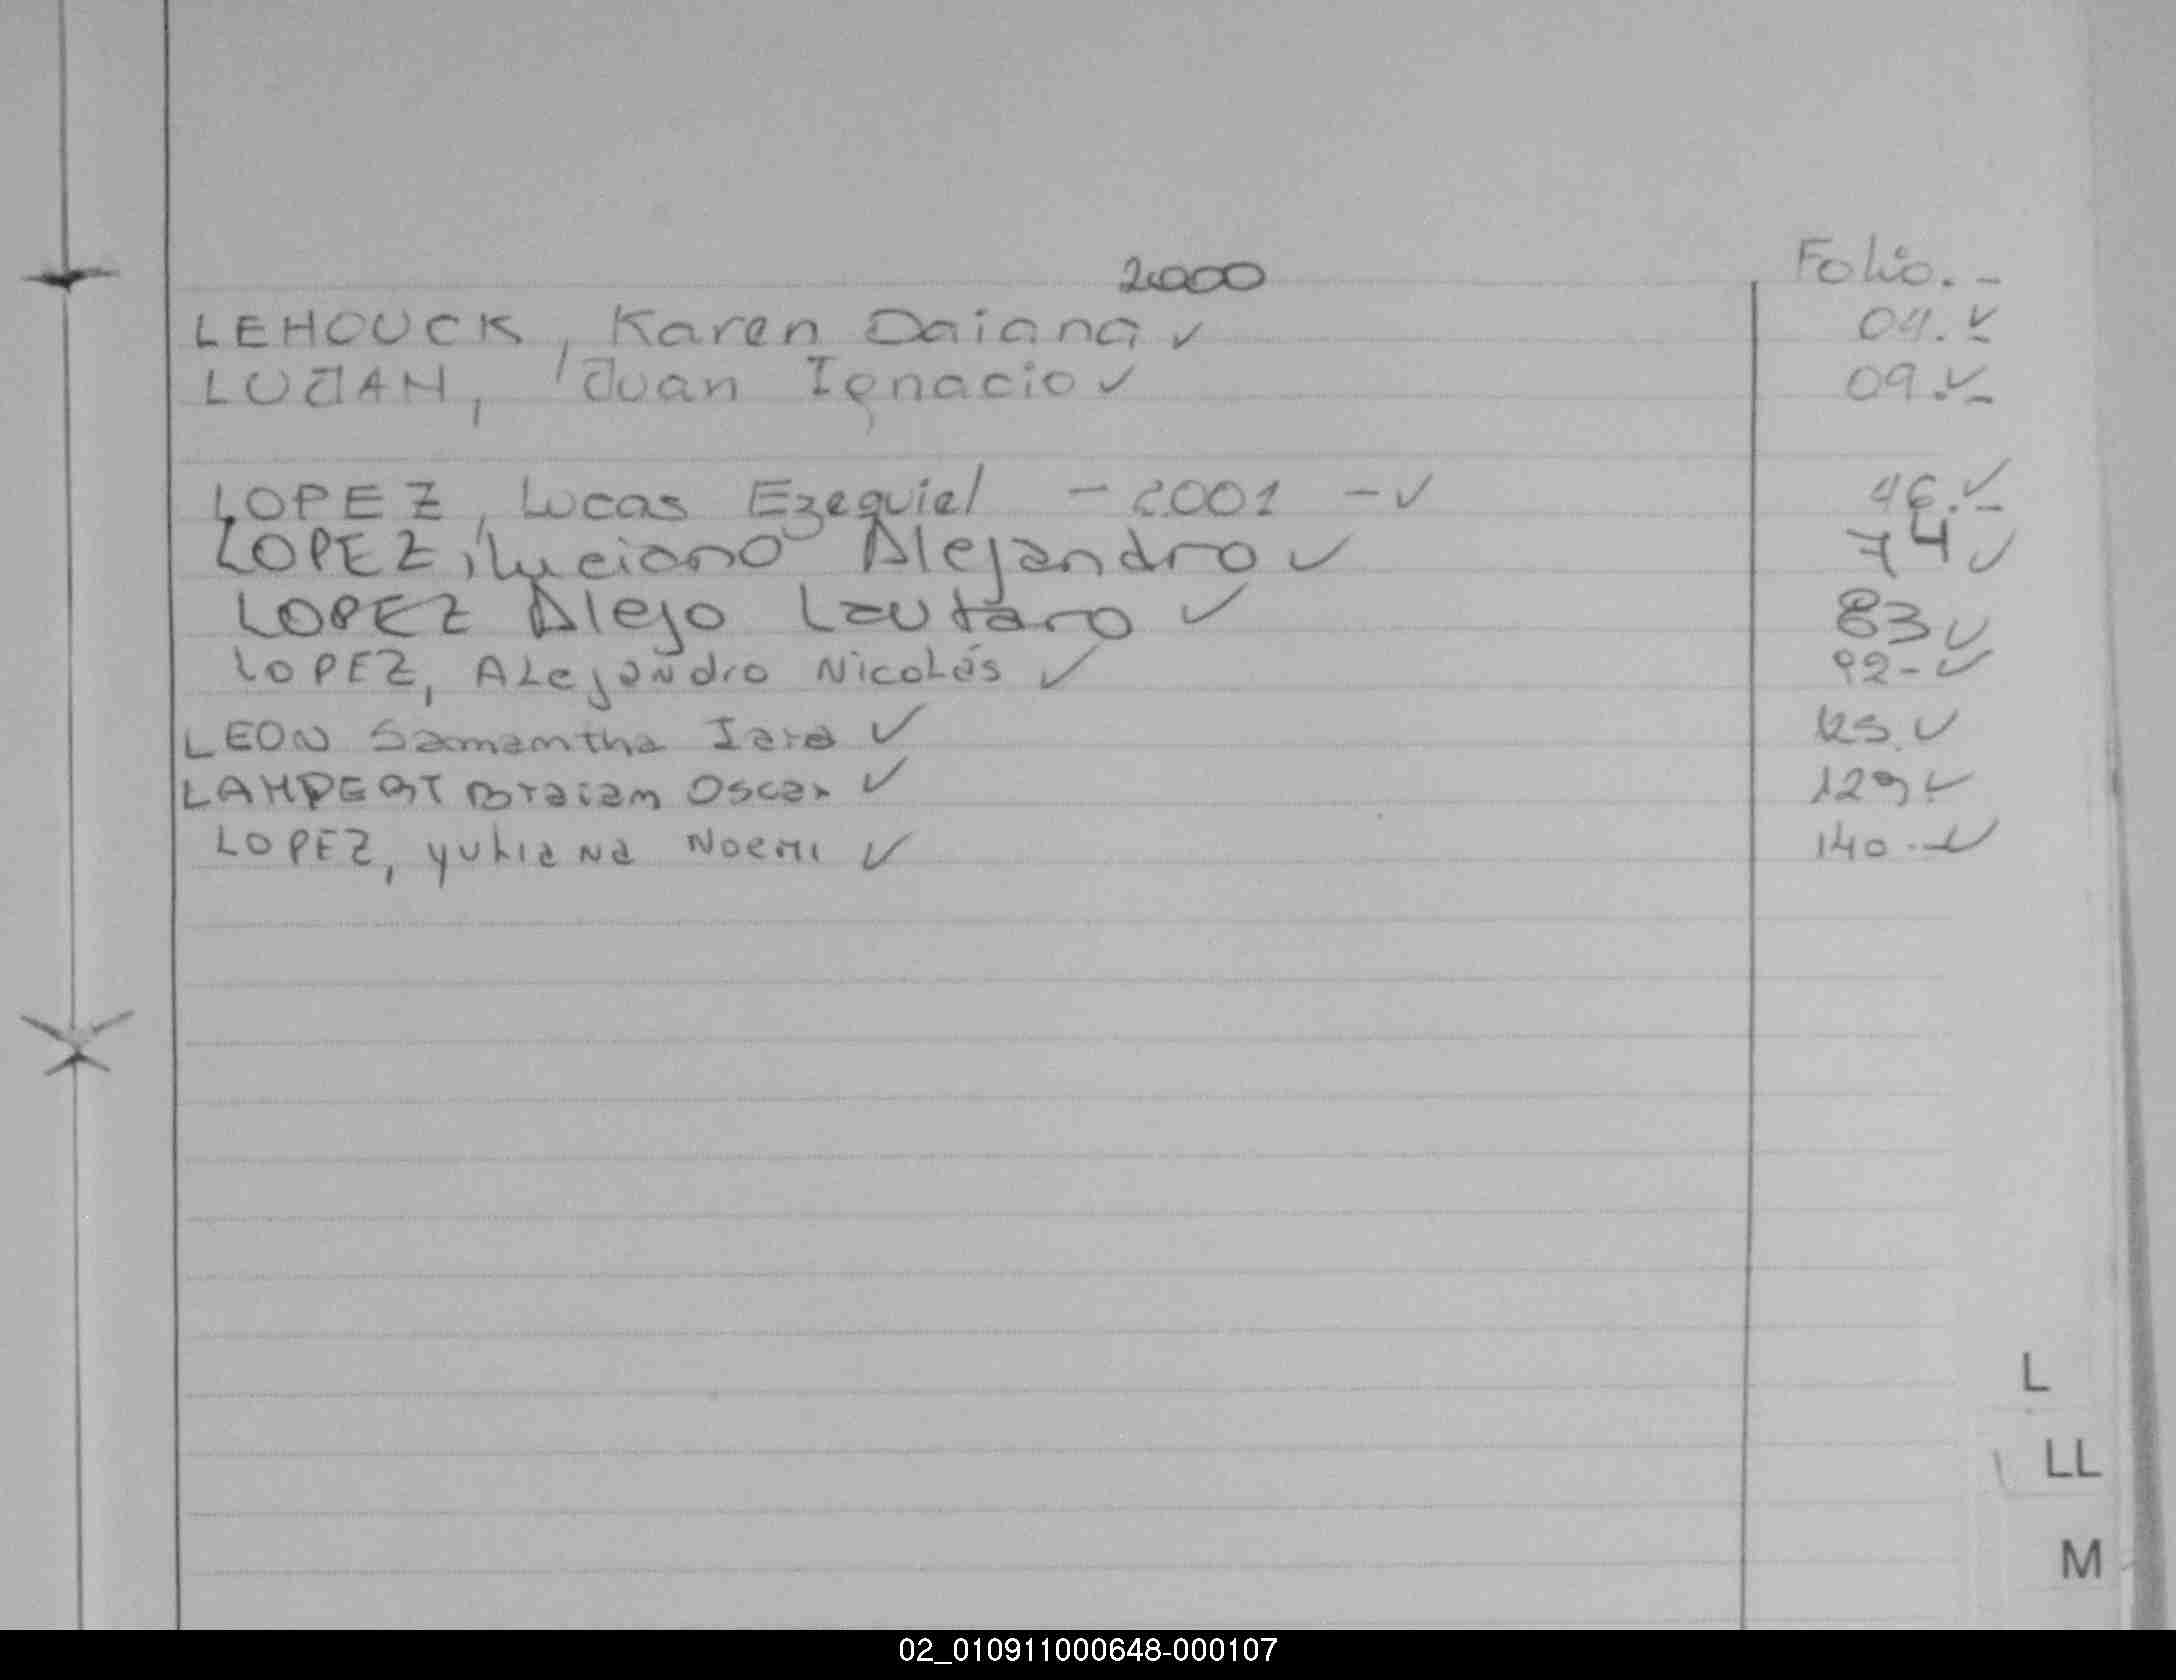 2000 Folio. -
LEHOUCK, Karen Daiana ✓ 04. ✓ -
LUJAN, Juan Ignacio ✓ 09. ✓ -
LOPEZ, Lucas Ezequiel - 2001 - ✓ 46. ✓ -
LOPEZ, Luciano Alejandro ✓ 74 ✓
LOPEZ Alejo Lautaro ✓ 83 ✓
LOPEZ, Alejandro Nicolás ✓ 92 - ✓
LEON Samantha Iara ✓ 125. ✓
LAMPERT Braian Oscar ✓ 129 ✓
LOPEZ, yuliana Noemi ✓ 140 - ✓
L
LL
M
02_010911000648-000107